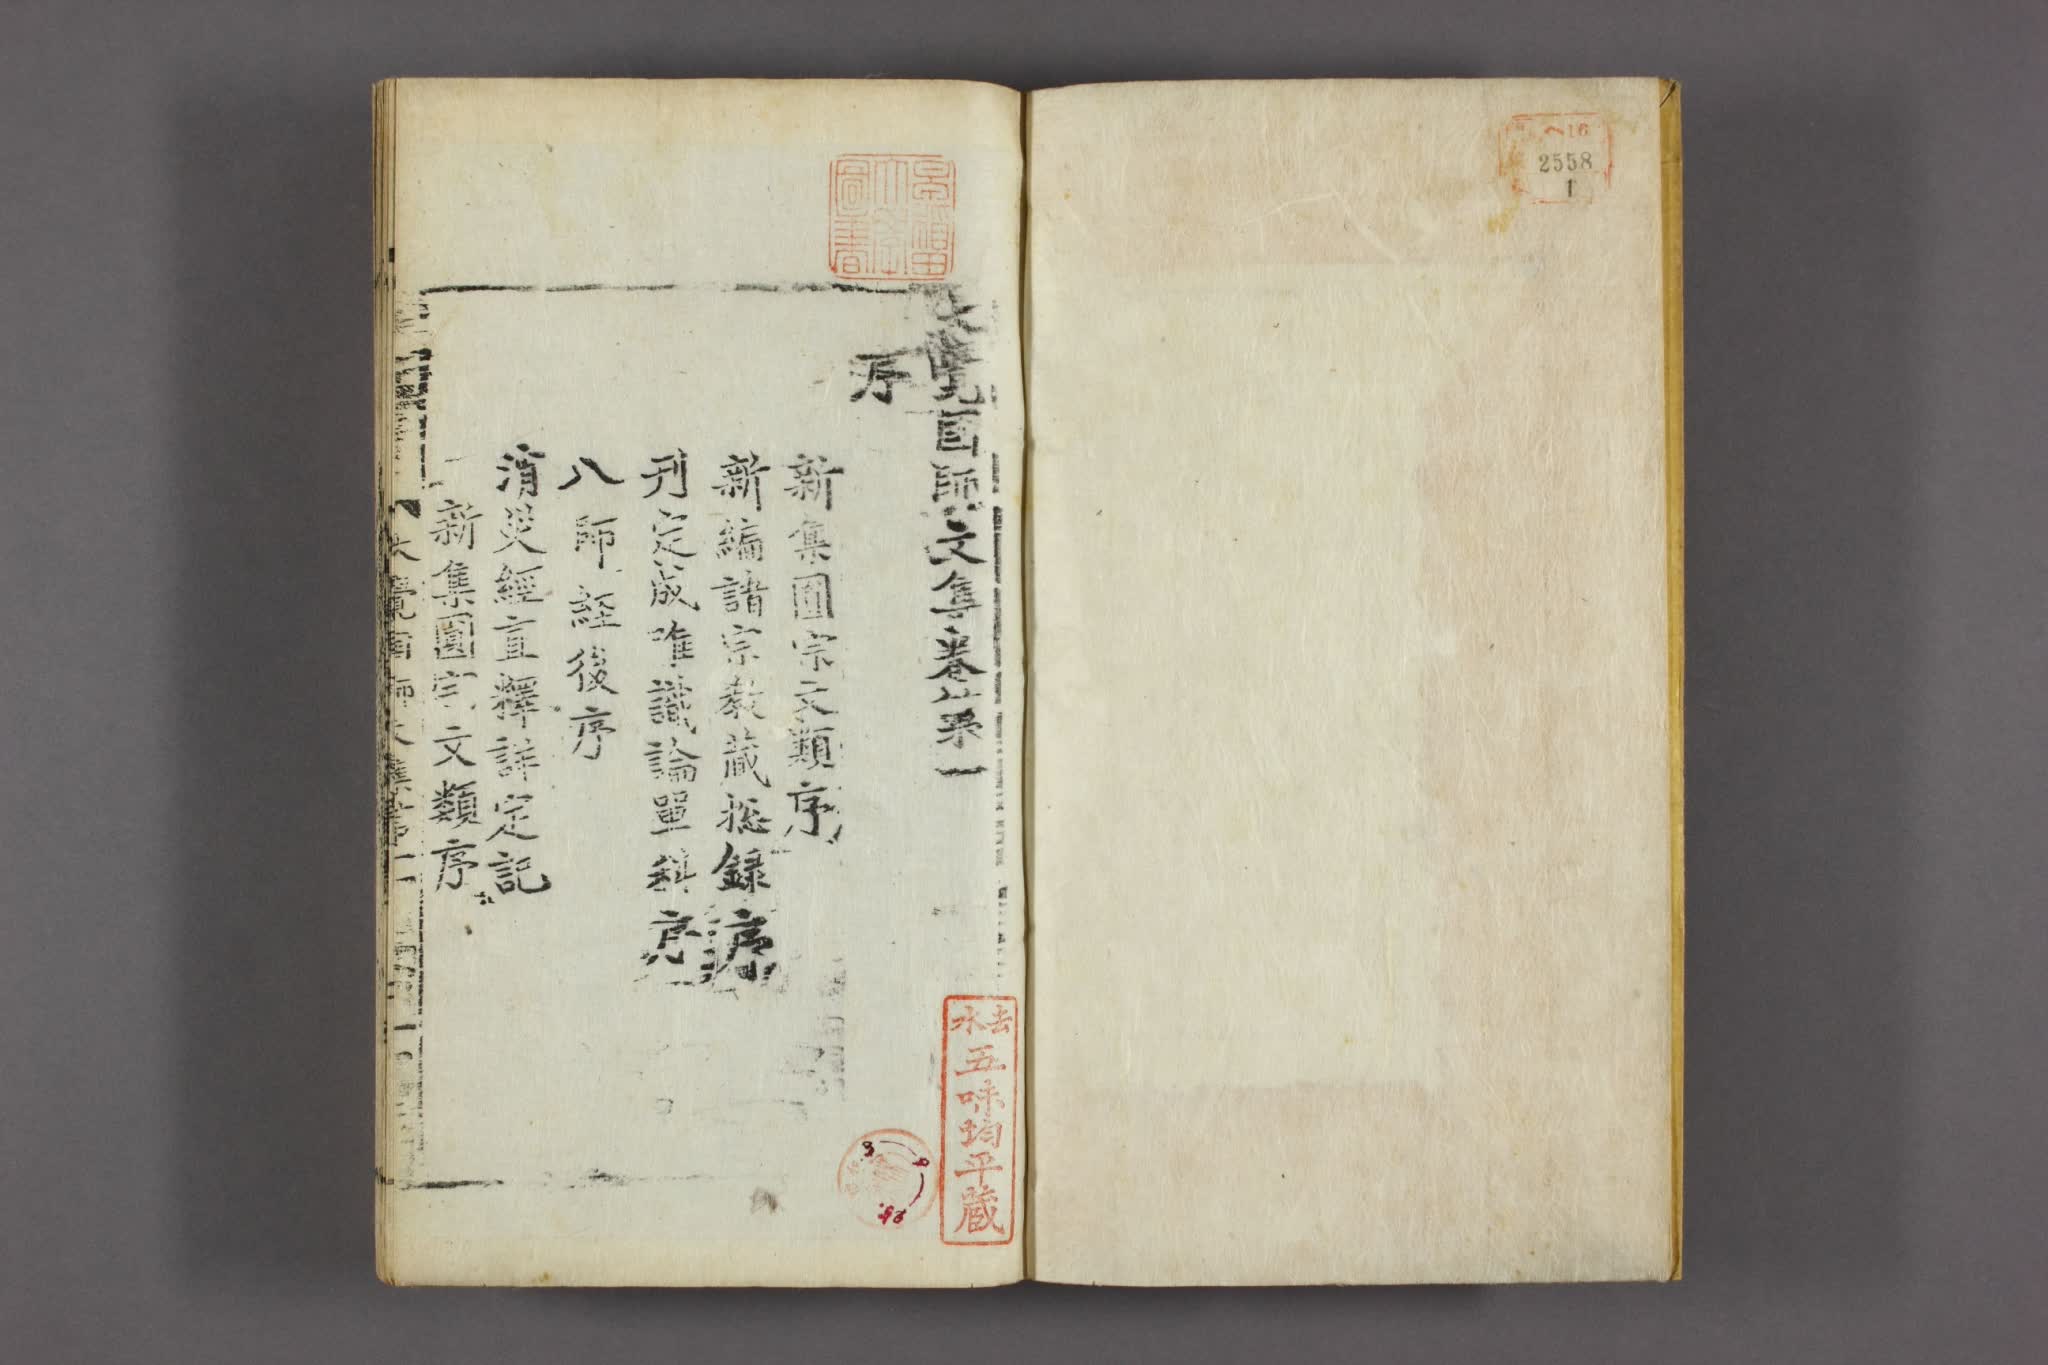 ヘ16
2558
1
早稲田大學圖書
大覺國師文集卷第一
序
新集圓宗文類序
新編諸宗敎藏摠録序
刊定成唯識論單科序
八師経後序
消災經直釋詳定記
新集圓宗文類序
大覺國師文集第一
去水
五味均平蔵